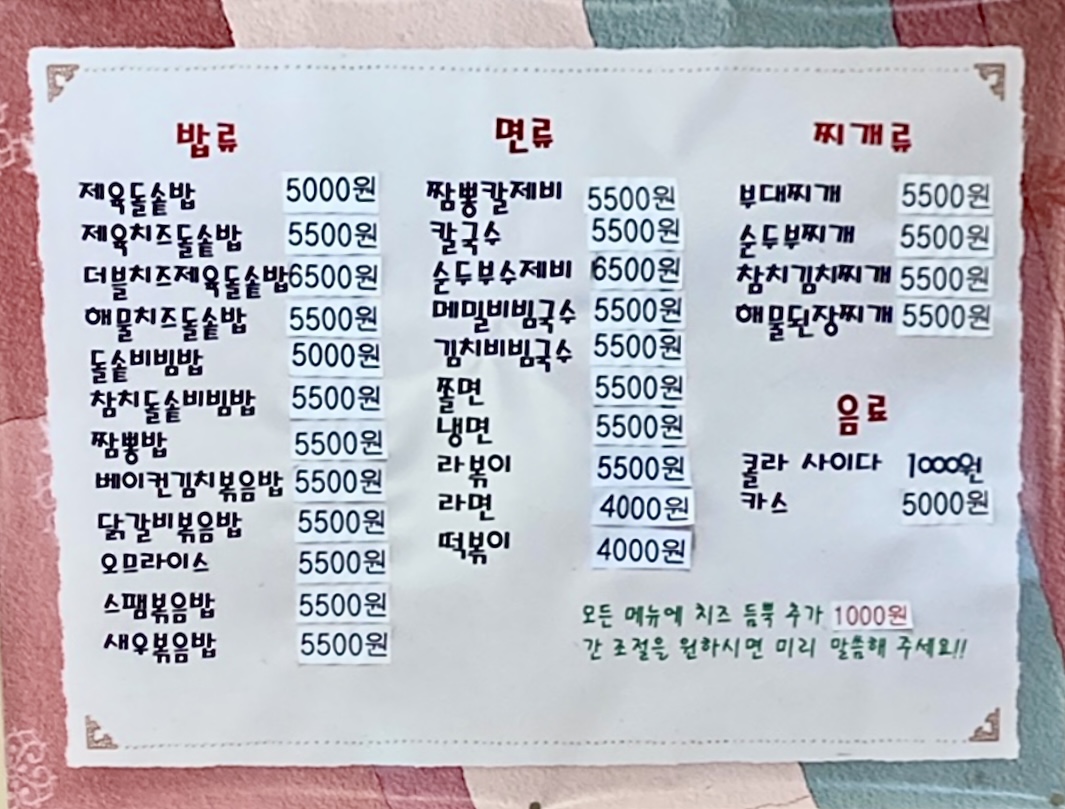 밥류
제육돌솥밥 5000원
제육치즈돌솥밥 5500원
더블치즈제육돌솥밥 6500원
해물치즈돌솥밥 5500원
돌솥비빔밥 5000원
참치돌솥비빔밥 5500원
짬뽕밥 5500원
베이컨김치볶음밥 5500원
닭갈비볶음밥 5500원
오므라이스 5500원
스팸볶음밥 5500원
새우볶음밥 5500원
면류
짬뽕칼제비 5500원
칼국수 5500원
순두부수제비 6500원
메밀비빔국수 5500원
김치비빔국수 5500원
쫄면 5500원
냉면 5500원
라볶이 5500원
라면 4000원
떡볶이 4000원
찌개류
부대찌개 5500원
순두부찌개 5500원
참치김치찌개 5500원
해물된장찌개 5500원
음료
콜라 사이다 1000원
카스 5000원
모든 메뉴에 치즈 듬뿍 추가 1000원
간 조절을 원하시면 미리 말씀해 주세요!!